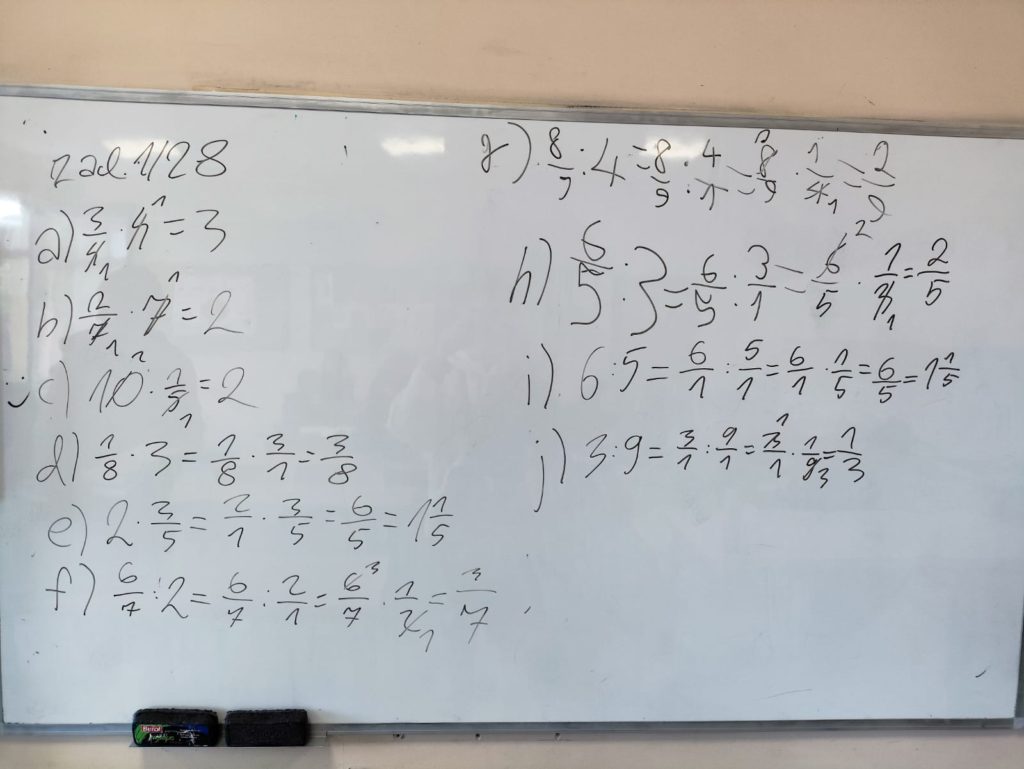 zad. 1/28
a) 3/4₁ · 4¹ = 3
b) 2/7₁ · 7¹ = 2
c) 10² · 1/5₁ = 2
d) 1/8 · 3 = 1/8 · 3/1 = 3/8
e) 2 · 3/5 = 2/1 · 3/5 = 6/5 = 1 1/5
f) 6/7 : 2 = 6/7 : 2/1 = 6³/7 · 1/2₁ = 3/7
g) 8/9 : 4 = 8/9 : 4/1 = 8²/9 · 1/4₁ = 2/9
h) 6/5 : 3 = 6/5 : 3/1 = 6²/5 · 1/3₁ = 2/5
i) 6 : 5 = 6/1 : 5/1 = 6/1 · 1/5 = 6/5 = 1 1/5
j) 3 : 9 = 3/1 : 9/1 = 3¹/1 · 1/9₃ = 1/3
Berol